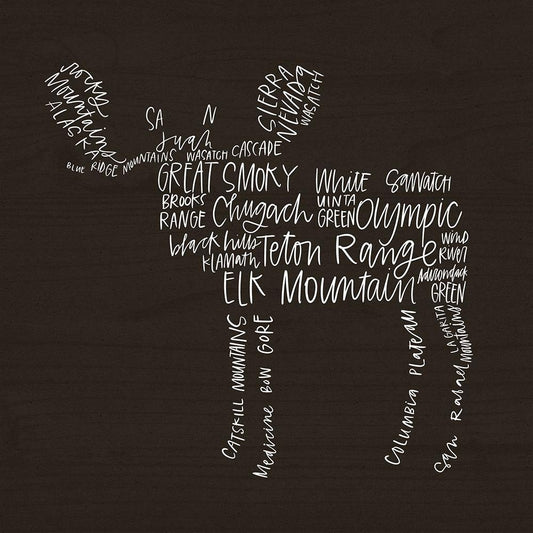 Rocky
Mountains
ALASKA
SIERRA
NEVADA
WASATCH
SA N
Juan
BLUE RIDGE MOUNTAINS WASATCH CASCADE
GREAT SMOKY White SAWATCH
BROOKS
RANGE Chugach UINTA
GREEN Olympic
black hills
KLAMATH Teton Range WIND
RIVER
ELK Mountain Adirondack
GREEN
CATSKILL MOUNTAINS
Medicine BOW GORE
COLUMBIA PLATEAU
San Rafael Mountains
LA GARITA